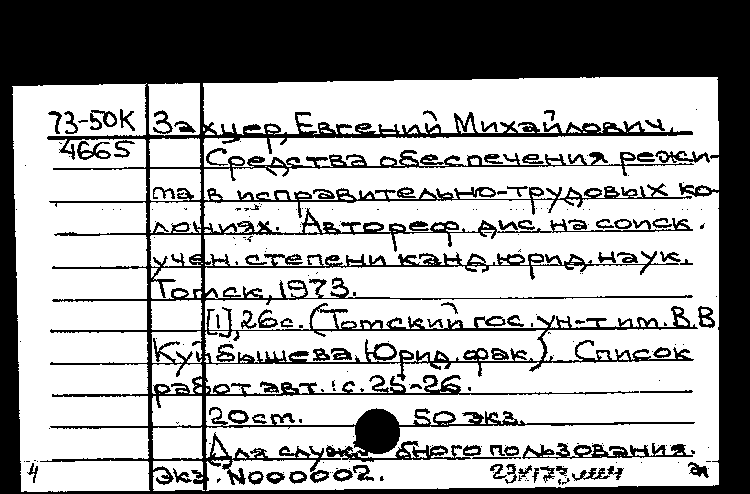 73-50К Захцер, Евгений Михайлович.
4665 Средства обеспечения режи-
ма в исправительно-трудовых ко-
лониях. Автореф. дис. на соиск.
учен. степени канд. юрид. наук.
Томск, 1973.
[1], 26 с. (Томский гос. ун-т им. В.В.
Куйбышева. Юрид. фак.). Список
работ авт.: с. 25-26.
20 см. 50 экз.
Для служебного пользования.
4 Экз. N000002.